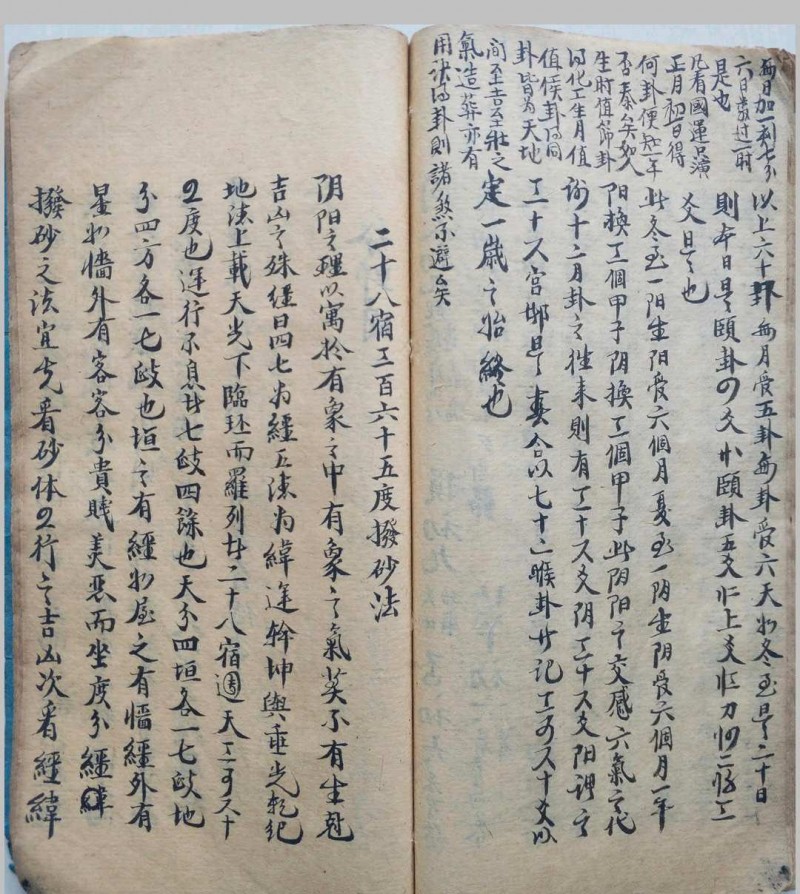 每日加一刻七分
六日歲过一时
是也
凡看國運吉凶
正月初一日得
何卦便知一年
否泰矣如人
生时值節卦
得化工生月值
值侯卦得同
卦皆为天地
间至吉至壯之
氣造葬亦有
用法得卦則諸煞不避矣
以上六十卦每月受五卦每卦受六天如冬至是二十日
則本日是頤卦
爻是也
此冬至一阳生阳受六個月夏至一阴生阴受六個月一年
阳換三個甲子阴換三個甲子此阴阳之交感六氣之化
十二月卦之往来則有三十六爻阴三十六爻阳謂之
三十六宮邵是書合以七十二候卦廿记三百六十爻以
定一歲之始終也
二十八宿三百六十五度撥砂法
阴阳之理以寓於有象之中有象之氣莫不有生尅
吉凶之殊經曰四七为經五德为緯运幹坤輿垂光乾纪
地法上載天光下臨玨而羅列廿二十八宿週天三百六十
五度也運行不息廿七政四餘也天分四垣各一七政地
分四方各一七政也垣之有經如屋之有墻經外有
星如墻外有客客分貴賎美惡而坐度分經緯
撥砂之法宜先看砂体五行之吉凶次看經緯